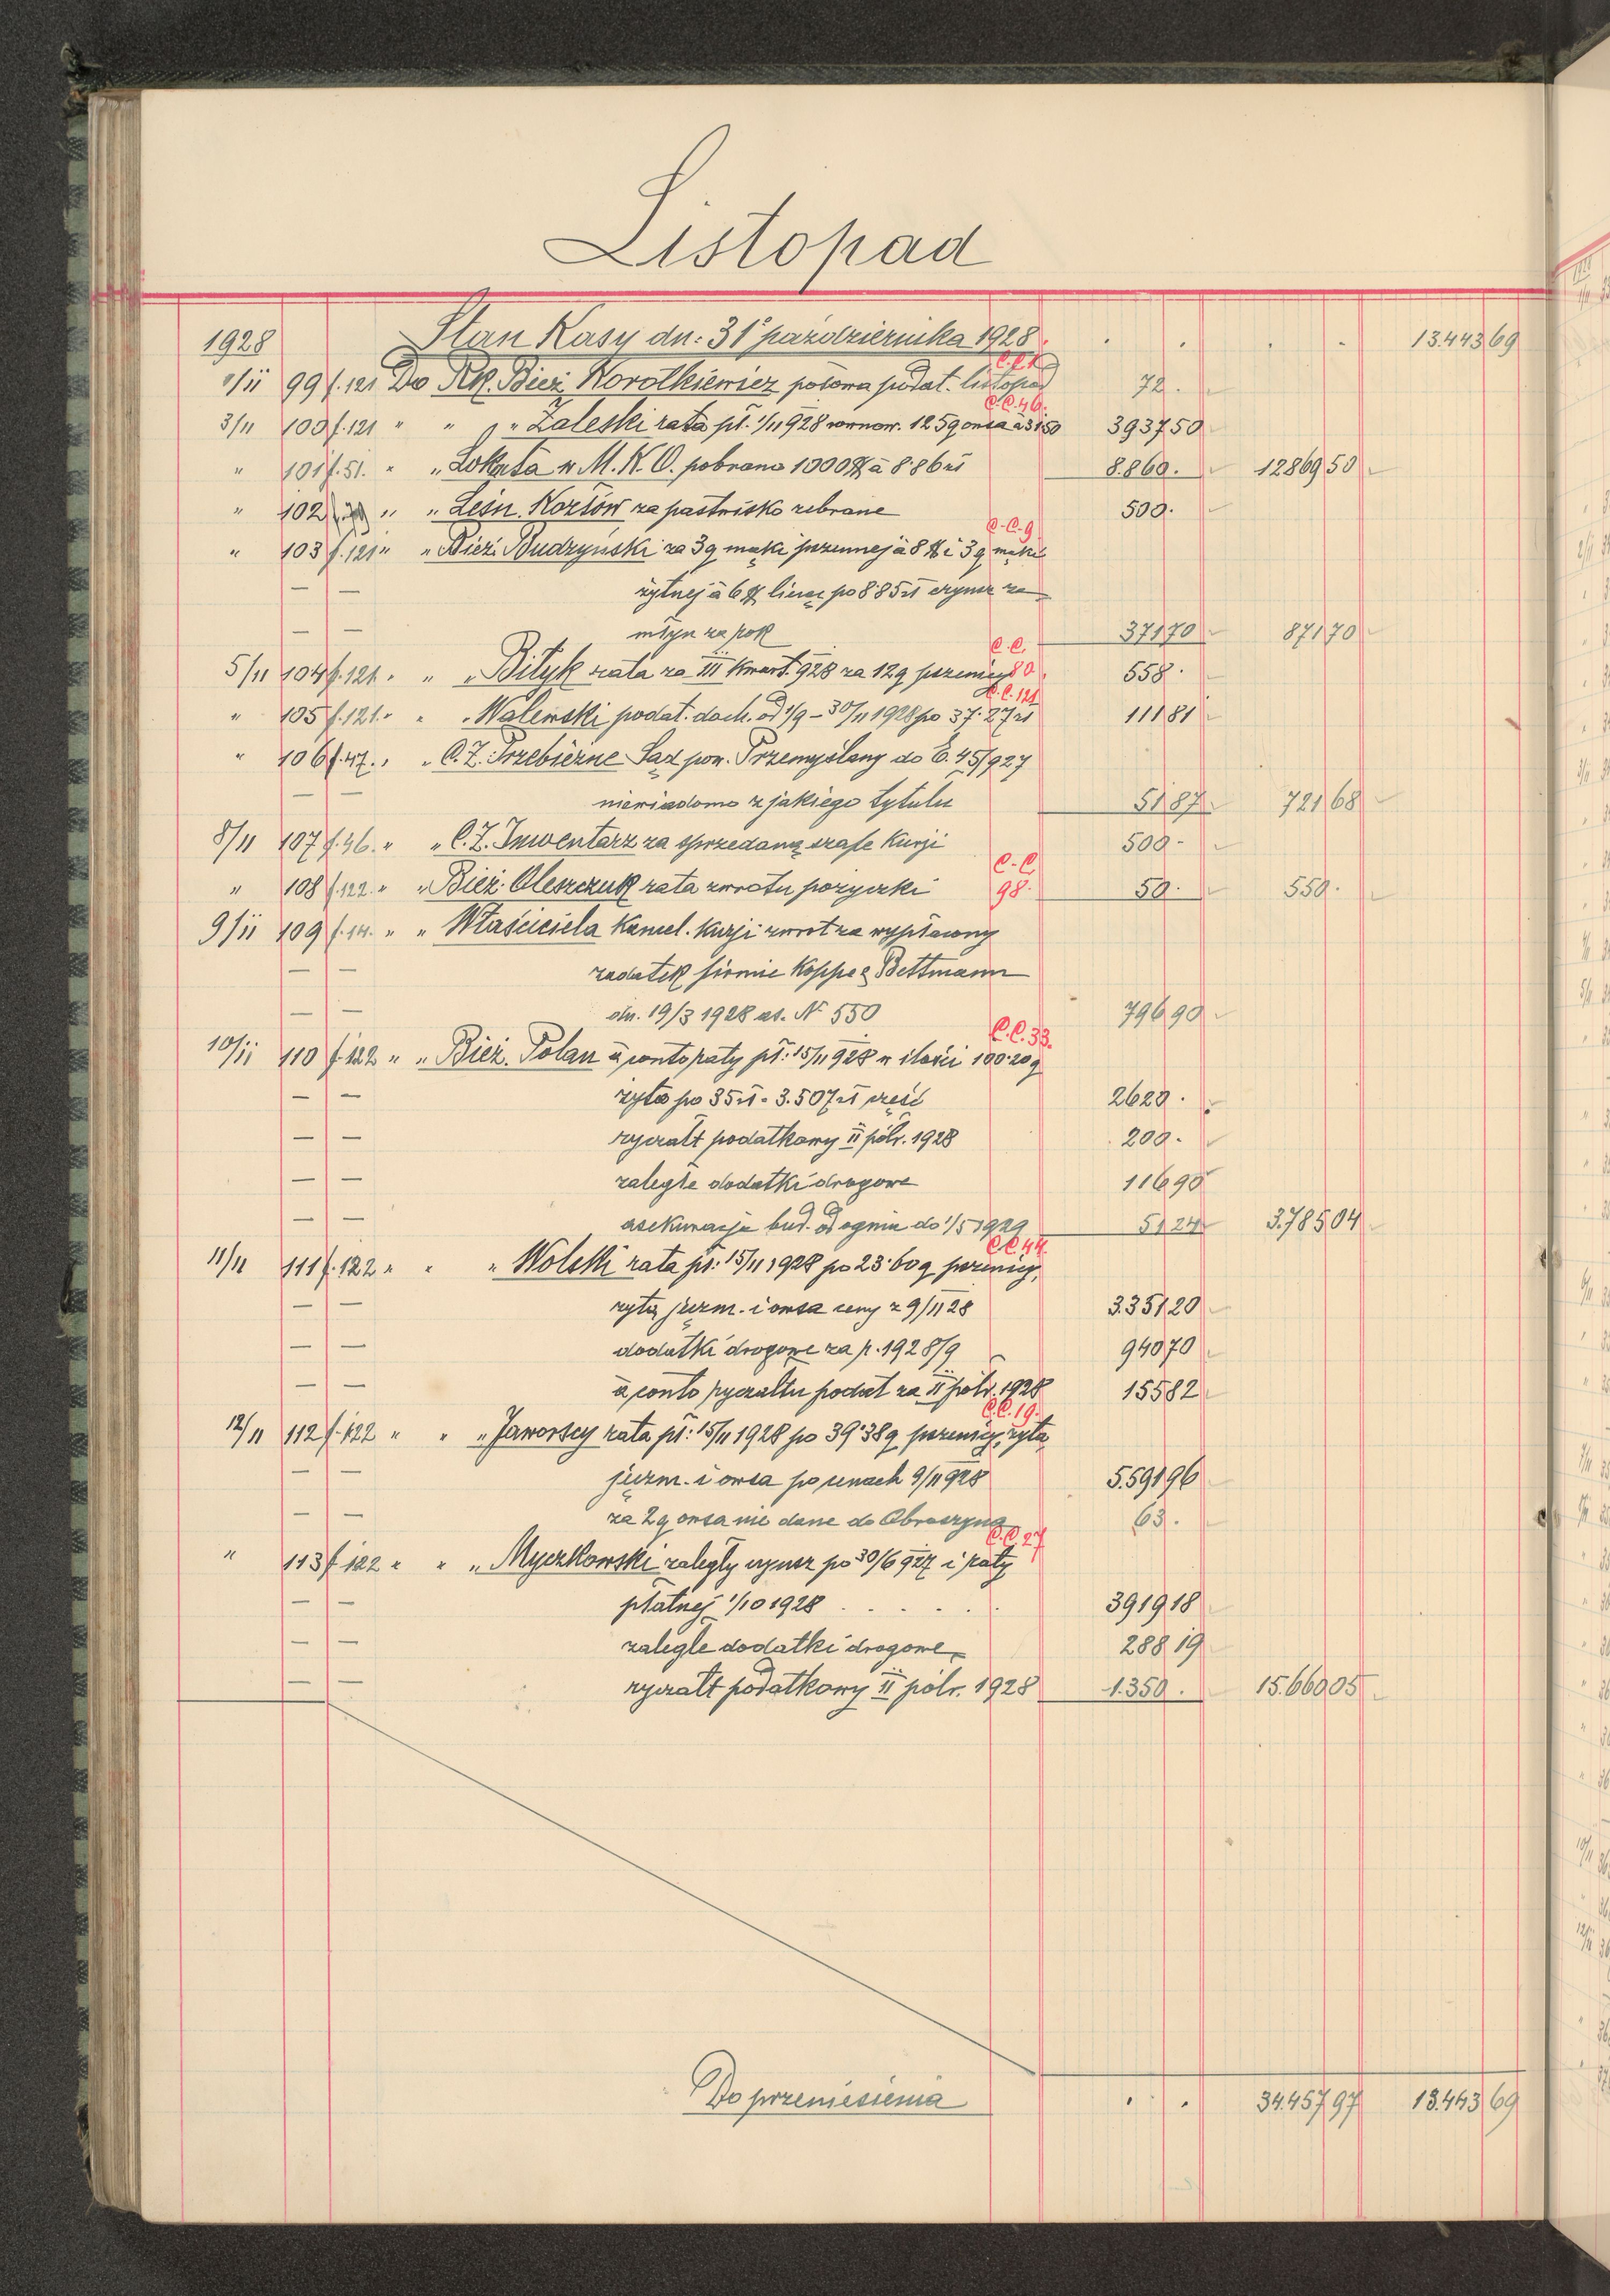 Listopad
1928 Stan Kasy dn: 31º października 1928 . . . . 13.443 69
1/11 99 f.121 Do Rk. Bież. Korotkiewicz połowa podat. listopad 72 .
C.C. 46.
3/11 100 f.121 " " " Zaleski rata pł. 1/11 928 równow. 125 q owsa à 31 50 3937 50
" 101 f.51. " " Lokata w M.K.O. pobrano 1000 $ à 8·86 zł 8.860 . 12869 50
" 102 " " Leśn. Kozłów za pastwisko zebrane 500 .
C.C. 9
" 103 f.121 " " Bież. Budzyński za 3 q mąki pszennej à 8 $ i 3 q mąki
— — żytnej à 6 $ licząc po 8·85 zł czynsz za
— — młyn za rok 371 70 871 70
C.C. 80.
5/11 104 f.121. " " Bityk rata za III kwart. 928 za 12 q pszenicy 558 .
C.C. 121
" 105 f.121. " " Walewski podat. doch. od 1/9 – 30/11 1928 po 37·27 zł 111 81
" 106 f.47. " " C.Z. Trzebieżne Sąd pow. Przemyślany do E. 45/927
— — niewiadomo z jakiego tytułu 51 87 721 68
8/11 107 f.46. " " C.Z. Inwentarz za sprzedaną szafę Kurji 500 -
C.C. 98.
" 108 f.122. " " Bież. Oleszczuk rata zwrotu pożyczki 50 . 550 .
9/11 109 f.14. " " Właściciela Kancel. Kurji zwrot za wypłacony
— — zadatek firmie Koppe & Bettmann
— — dn. 19/3 1928 as. Nº 550 796 90
C.C. 33.
10/11 110 f.122 " " Bież. Polan à conto raty pł: 15/11 928 w ilości 100·20 q
— — żyta po 35 zł = 3.507 zł część 2620 .
— — ryczałt podatkowy II półr. 1928 200 .
— — zaległe dodatki drogowe 116 90
— — asekuracja bud. od ognia do 1/5 1929 51 24 3.785 04
C.C. 44.
11/11 111 f.122 " " " Wolski rata pł: 15/11 1928 po 23·60 q pszenicy,
— — żyta, jęczm. i owsa ceny z 9/11 28 3.351 20
— — dodatki drogowe za r. 1928/9 940 70
— — à conto ryczałtu podat za II półr. 1928 155 82
C.C. 19.
12/11 112 f.122 " " " Jaworscy rata pł: 15/11 1928 po 39·38 q pszenicy, żyta,
— — jęczm. i owsa po cenach 9/11 928 5.591 96
— — za 2 q owsa nie dane do Obroszyna 63 .
C.C. 27
" 113 f.122 " " " Myczkowski zaległy czynsz po 30/6 927 i raty
— — płatnej 1/10 1928 . . . . . 3919 18
— — zaległe dodatki drogowe, 288 19
— — ryczałt podatkowy II półr. 1928 1.350 . 15.660 05
Do przeniesienia . . 34.457 97 13.443 69